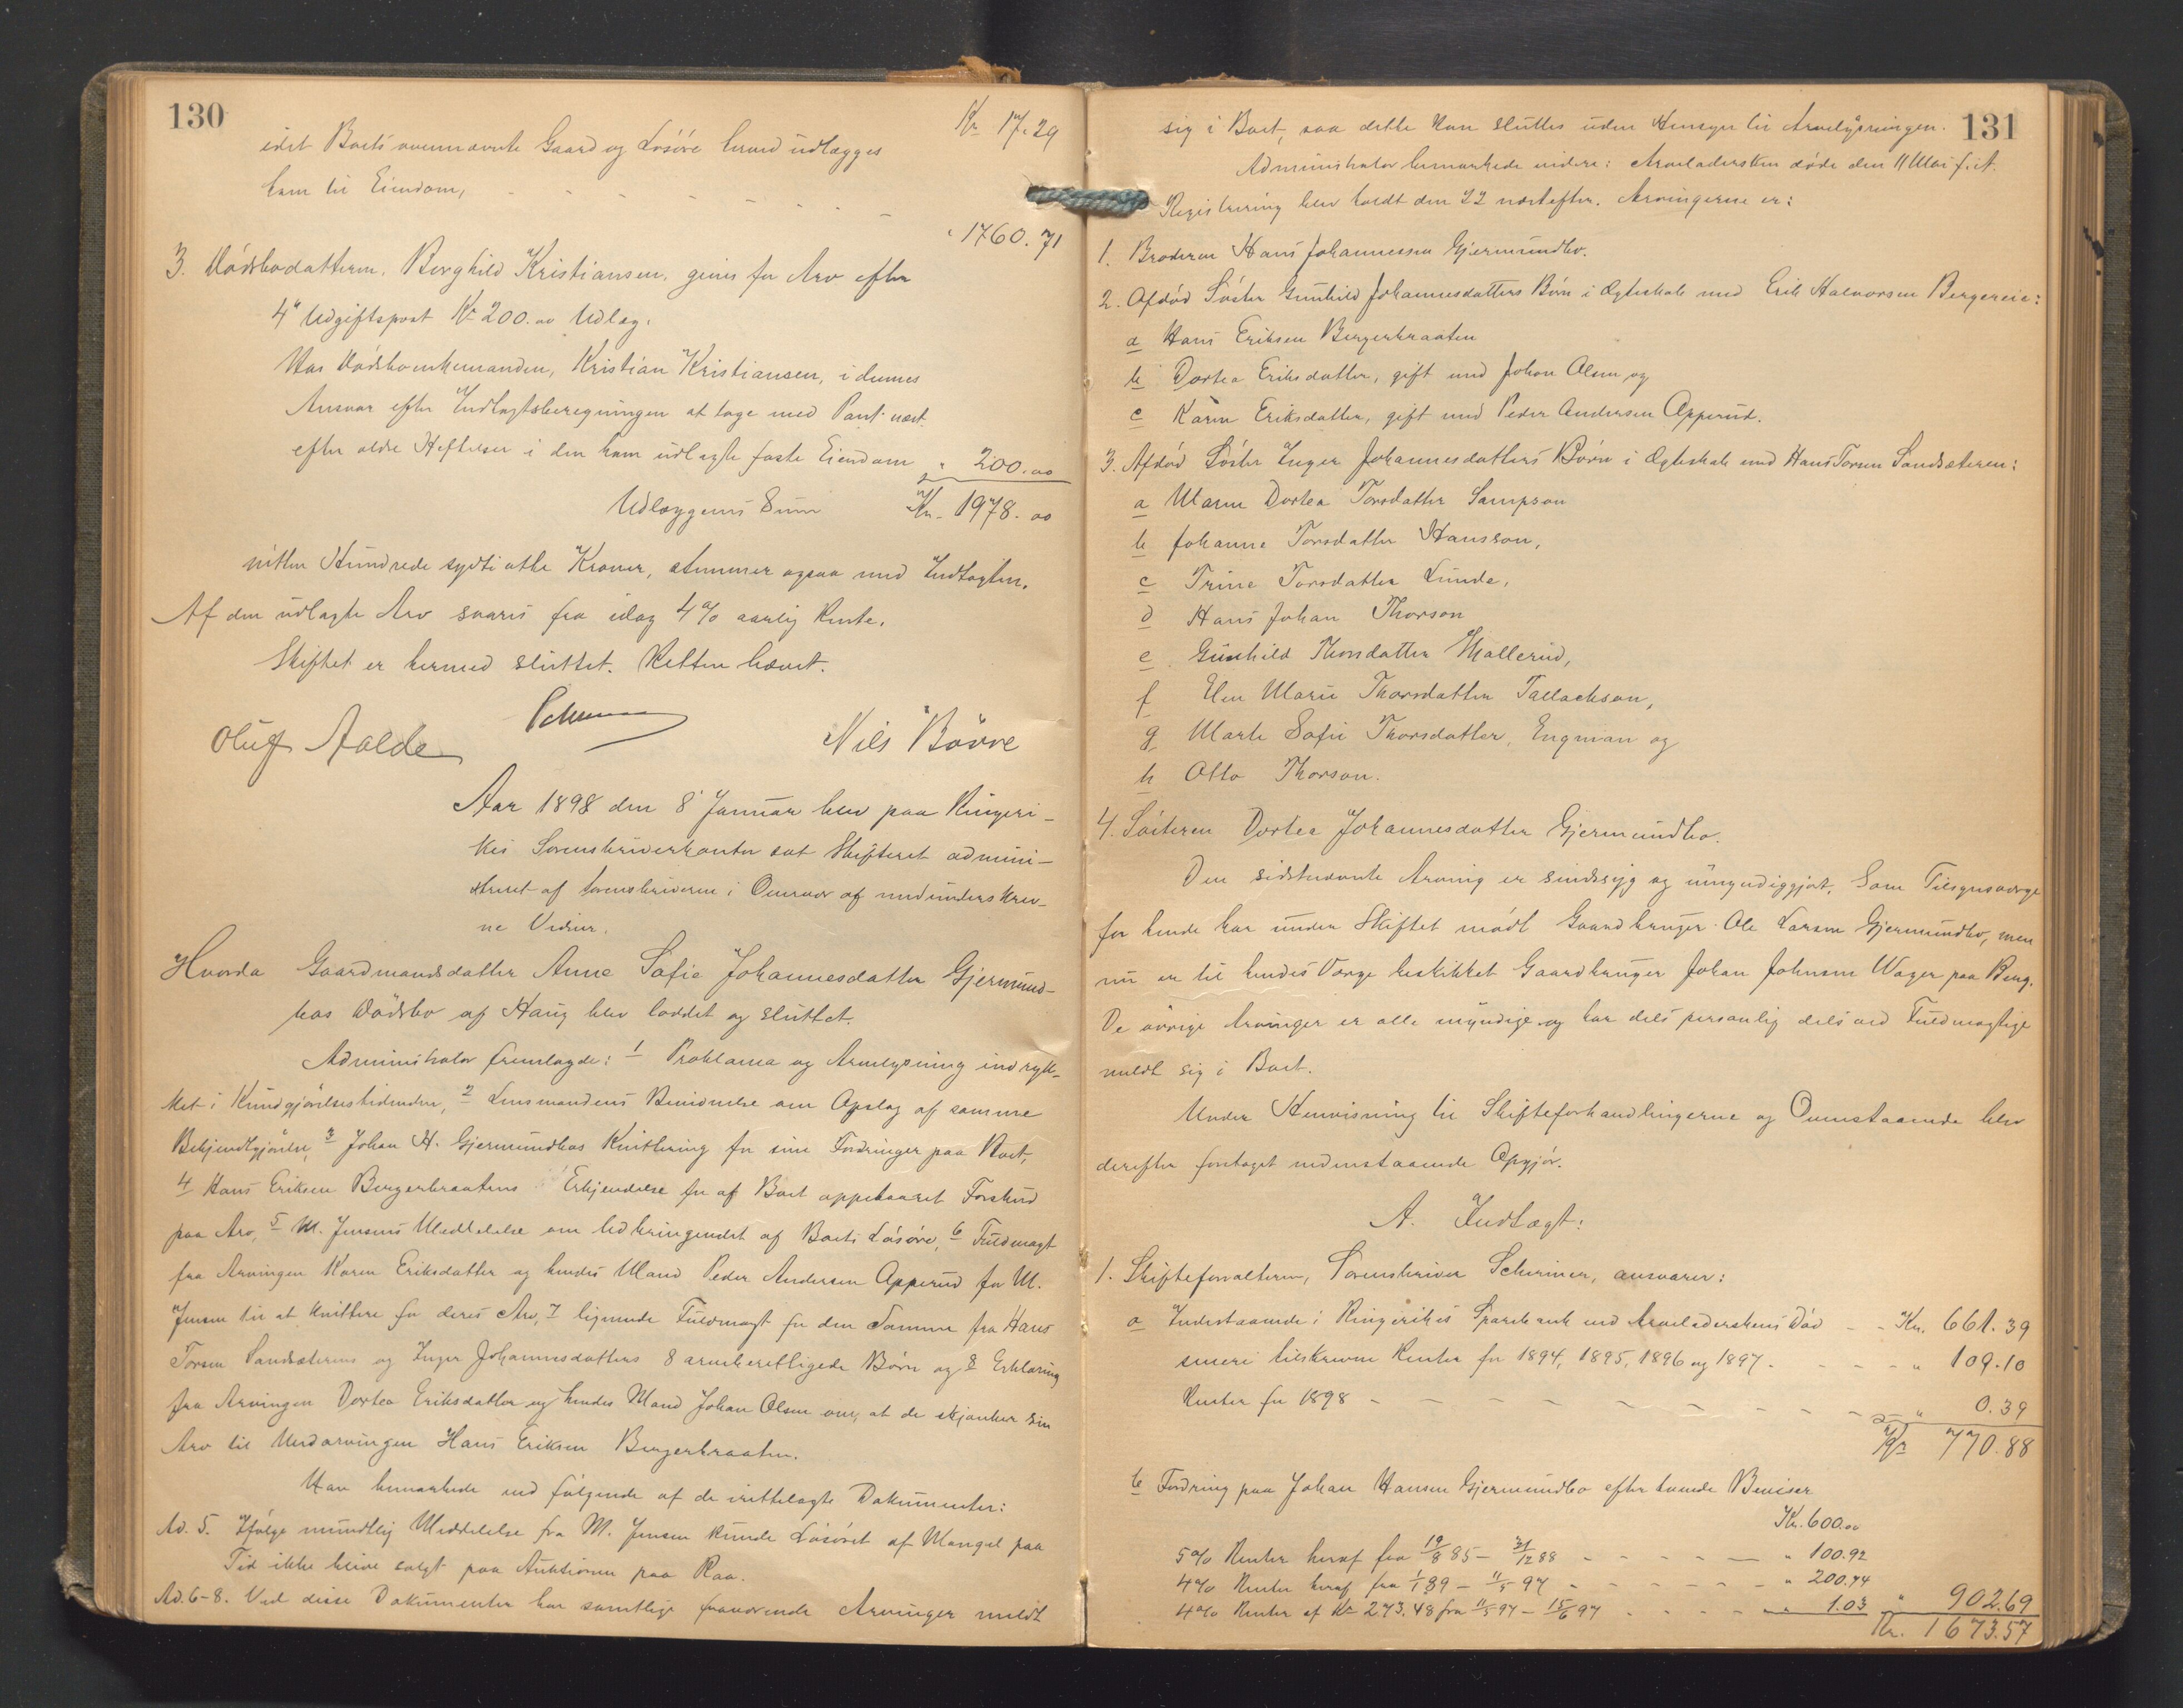 130
Kr 17.29
idet Boets ovennævnte Gaard og Løsøre herved udlægges
ham til Eiendom, - - - - - - - -
" 1760.71
3. Dødsbodatteren, Borghild Kristiansen, gives for Arv efter
4de Udgiftspost Kr 200.00 Udlæg.
Hos Dødsboenkemanden, Kristian Kristiansen, i dennes
Ansvar efter Indtægtsberegningen at tage med Pant næst
efter ældre Heftelser i den ham udlagte faste Eiendom " 200.00
Udlæggenes Sum Kr. 1978.00
nitten Hundrede sytti otte Kroner, stemmer ogsaa med Indtægten.
Af den udlagte Arv svares fra idag 4 % aarlig Rente.
Skiftet er hermed sluttet. Retten hævet.
Oluf Aalde Nils Børre
Aar 1898 den 8 Januar blev paa Ringeri-
kes Sorenskriverkontor sat Skifteret admini-
streret af Sorenskriveren i Overvær af nedunderskrev-
ne Vidner.
Hvorda Gaardmandsdatter Anne Sofie Johannesdatter Gjermund-
bos Dødsbo af Haug blev loddet og sluttet.
Administrator fremlagde: 1 Proklama og Arvelysning indryk-
ket i Kundgjørelsestidenden, 2 Lensmandens Bevidnelse om Opslag af samme
Bekjendtgjørelse, 3 Johan H. Gjermundbos Kvittering for sine Fordringer paa Boet,
4 Hans Eriksen Bergerbraatens Erkjendelse for af Boet oppebaaret Forskud
paa Arv, 5 M. Jensens Meddelelse om Udbringendet af Boets Løsøre, 6 Fuldmagt
fra Arvingen Karen Eriksdatter og hendes Mand Peder Andersen Opperud for M.
Jensen til at kvittere for deres Arv, 7 lignende Fuldmagt for den Samme fra Hans
Torsen Sandsæterens og Inger Johannesdatters 8 arveberettigede Børn og 8 Erklæring
fra Arvingen Dortea Eriksdatter og hendes Mand Johan Olsen om, at de skjænker sin
Arv til Medarvingen Hans Eriksen Bergerbraaten.
Han bemærkede ved følgende af de irettelagte Dokumenter:
Ad. 5. Ifølge mundtlig Meddelelse fra M. Jensen kunde Løsøret af Mangel paa
Tid ikke blive solgt paa Auktionen paa Raa.
Ad. 6-8. Ved disse Dokumenter har samtlige fraværende Arvinger meldt
131
sig i Boet, saa dette kan sluttes uden Hensyn til Arvelysningen.
Administrator bemærkede videre: Arveladersken døde den 11 Mai f. A.
Registrering blev holdt den 22 næstefter. Arvingerne er:
1. Broderen Hans Johannessen Gjermundbo.
2. Afdød Søster Gunhild Johannesdatters Børn i Ægteskab med Erik Halvorsen Bergereie:
a Hans Eriksen Bergerbraaten
b Dortea Eriksdatter, gift med Johan Olsen og
c Karen Eriksdatter, gift med Peder Andersen Opperud.
3. Afdød Søster Inger Johannesdatters Børn i Ægteskab med Hans Torsen Sandsæteren:
a Maren Dortea Torsdatter Sampson
b Johanne Torsdatter Hansson,
c Trine Torsdatter Lunde,
d Hans Johan Thorson
e Gunhild Thorsdatter Møllerud,
f Elen Marie Thorsdatter Tallackson,
g Marte Sofie Thorsdatter Engman og
h Otto Thorson.
4. Søsteren Dortea Johannesdatter Gjermundbo.
Den sidstnævnte Arving er sindssyg og umyndiggjort. Som Tilsynsværge
for hende har under Skiftet mødt Gaardbruger Ole Larsen Gjermundbo, men
nu er til hendes Værge beskikket Gaardbruger Johan Johnsen Wager paa Berg.
De øvrige Arvinger er alle myndige og har dels personlig dels ved Fuldmægtige
meldt sig i Boet.
Under Henvisning til Skifteforhandlingerne og Ovenstaaende blev
derefter foretaget nedenstaaende Opgjør.
A. Indtægt:
1. Skifteforvalteren, Sorenskriver Scheriner, ansvarer:
a Indestaaende i Ringerikes Sparebank ved Arveladerskens Død - - Kr. 661.39
senere tilskrevne Renter for 1894, 1895, 1896 og 1897 - - - - " 109.10
Renter for 1898 - - - - - - - - - - " 0.39
Kr 770.88
b Fordring paa Johan Hansen Gjermundbo efter tvende Beviser
Kr. 600.00
5 % Renter heraf fra 19/8 85 - 31/12 88 - - - - - " 100.92
4 % Renter heraf fra 1/1 89 - 11/5 97 - - - - - " 200.74
4 % Renter af Kr 273.48 fra 11/5 97 - 15/6 97 - - - - " 1.03 " 902.69
Kr. 1673.57